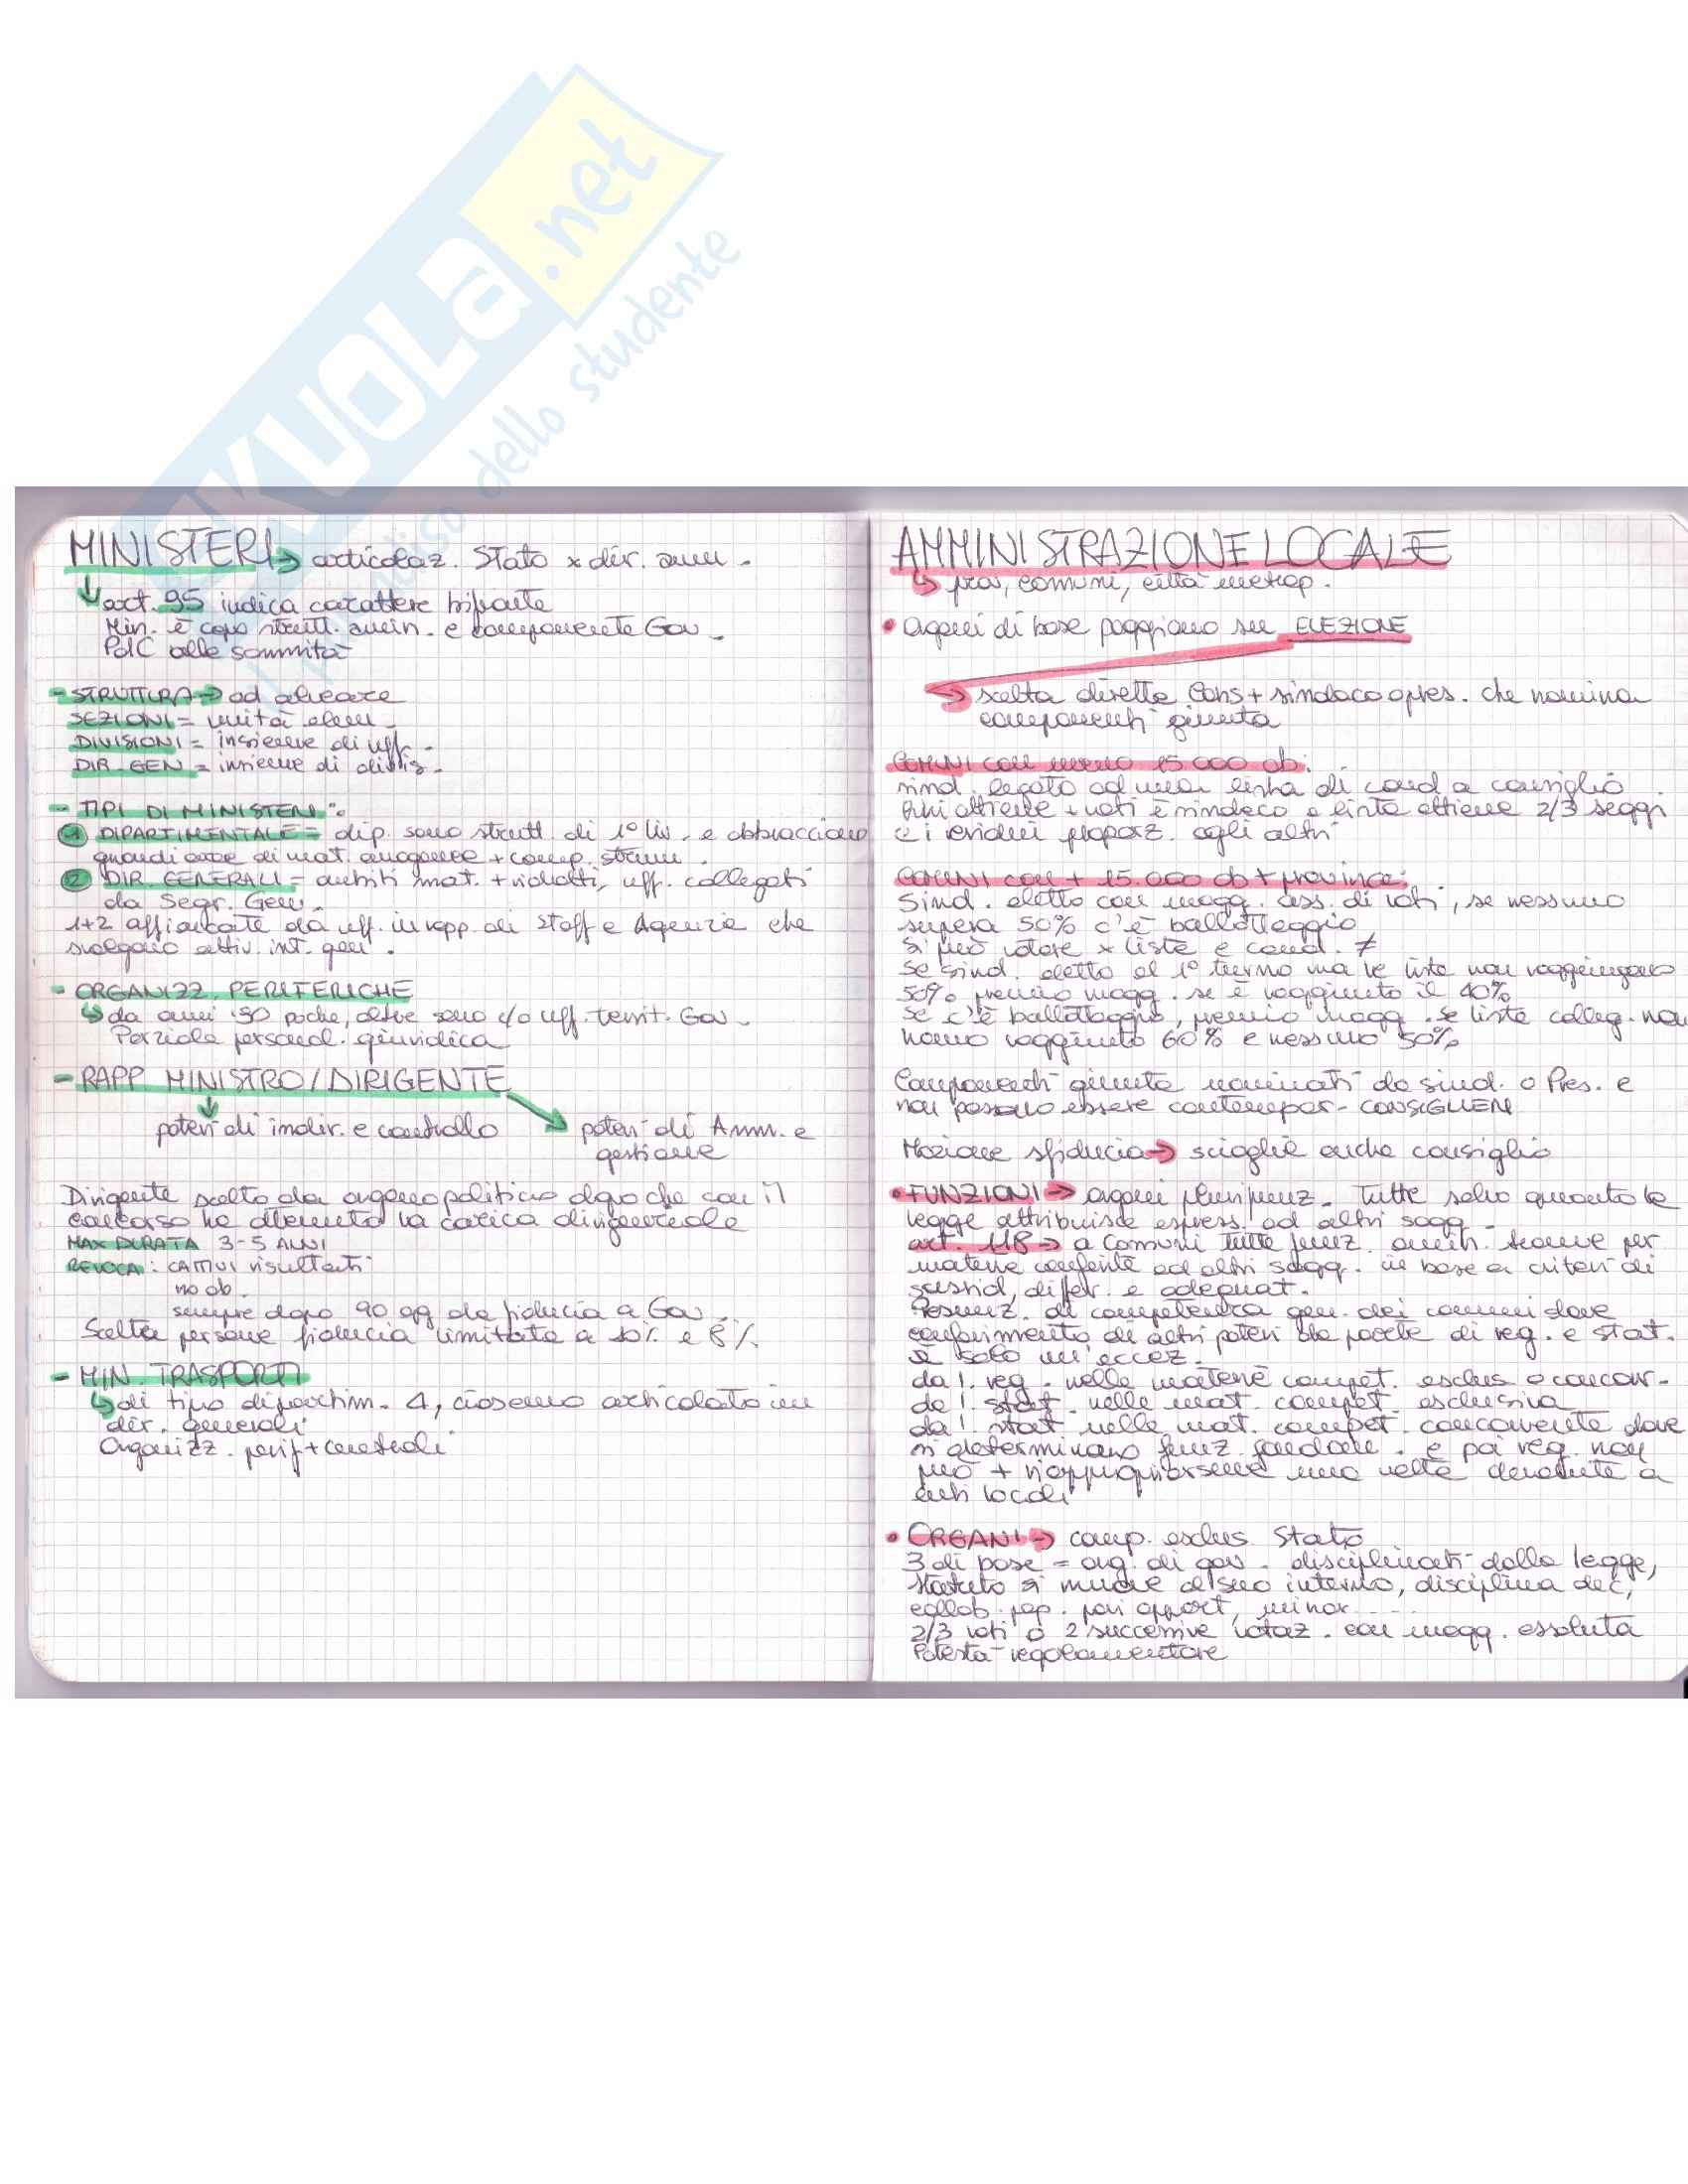 SKUOLA.net
dello studente
MINISTERI → articolaz. Stato x dir. amm.
art. 95 indica carattere bifronte
Min. è capo strutt. amm. e componente Gov.
PdC alle sommità
- STRUTTURA → ad alveare
SEZIONI = unità elem.
DIVISIONI = insieme di uff.
DIR. GEN = insieme di divis.
- TIPI DI MINISTERI:
1 DIPARTIMENTALE = dip. sono strutt. di 1° liv. e abbracciano
grandi aree di mat. omogenee + comp. strum.
2 DIR. GENERALI = ambiti mat. + ridotti, uff. collegati
da Segr. Gen.
1+2 affiancate da uff. in rapp. di staff e Agenzie che
svolgono attiv. int. gen.
- ORGANIZZ. PERIFERICHE
da anni '90 poche, altre sono c/o uff. territ. Gov.
Parziale personal. giuridica
- RAPP MINISTRO/DIRIGENTE
poteri di indir. e controllo
poteri di Amm. e
gestione
Dirigente scelto da organo politico dopo che con il
concorso ha ottenuto la carica dirigenziale
MAX DURATA 3-5 ANNI
REVOCA: CATTIVI risultati
no ob.
sempre dopo 90 gg da fiducia a Gov.
Scelta persone fiducia limitata a 10% e 8%
- MIN. TRASPORTI
di tipo dipartim. 4, ciascuno articolato in
dir. generali
Organizz. perif + centrali
AMMINISTRAZIONE LOCALE
prov, comuni, città metrop.
• Organi di base poggiano su ELEZIONE
scelta diretta Cons + sindaco o pres. che nomina
componenti giunta
COMUNI con meno 15 000 ab:
sind. legato ad una lista di cand a consiglio.
Chi ottiene + voti è sindaco e lista ottiene 2/3 seggi
e i residui proporz. agli altri
COMUNI con + 15.000 ab + province:
Sind. eletto con magg. ass. di voti, se nessuno
supera 50% c'è ballottaggio
Si può votare x liste e cand. ≠
Se sind. eletto al 1° turno ma le liste non raggiungono
50% premio magg. se è raggiunto il 40%
Se c'è ballottaggio, premio magg. se liste colleg. non
hanno raggiunto 60% e nessuno 50%
Componenti giunta nominati da sind. o Pres. e
non possono essere contempor. CONSIGLIERI
Mozione sfiducia → scioglie anche consiglio
• FUNZIONI → organi plurifunz. Tutte salvo quanto la
legge attribuisce espress. ad altri sogg.
art. 118 → a Comuni tutte funz. amm. tranne per
materie conferite ad altri sogg. in base a criteri di
sussid, differ. e adeguat.
Presunz. di competenza gen. dei comuni dove
conferimento di altri poteri da parte di reg. e stat.
è solo un'eccez.
da l. reg. nelle materie compet. esclus o concorr.
da l. stat. nelle mat. compet. esclusiva
da l. stat. nelle mat. compet. concorrente dove
si determinano funz. fondam. e poi reg. non
può + riappropriarsene una volta devolute a
enti locali
• ORGANI → comp. esclus. Stato
3 di base = org. di gov. disciplinati dalla legge,
statuto si muove al suo interno, disciplina dec,
collab. pop. pari opport, minor....
2/3 voti o 2 successive votaz. con magg. assoluta
Potestà regolamentare